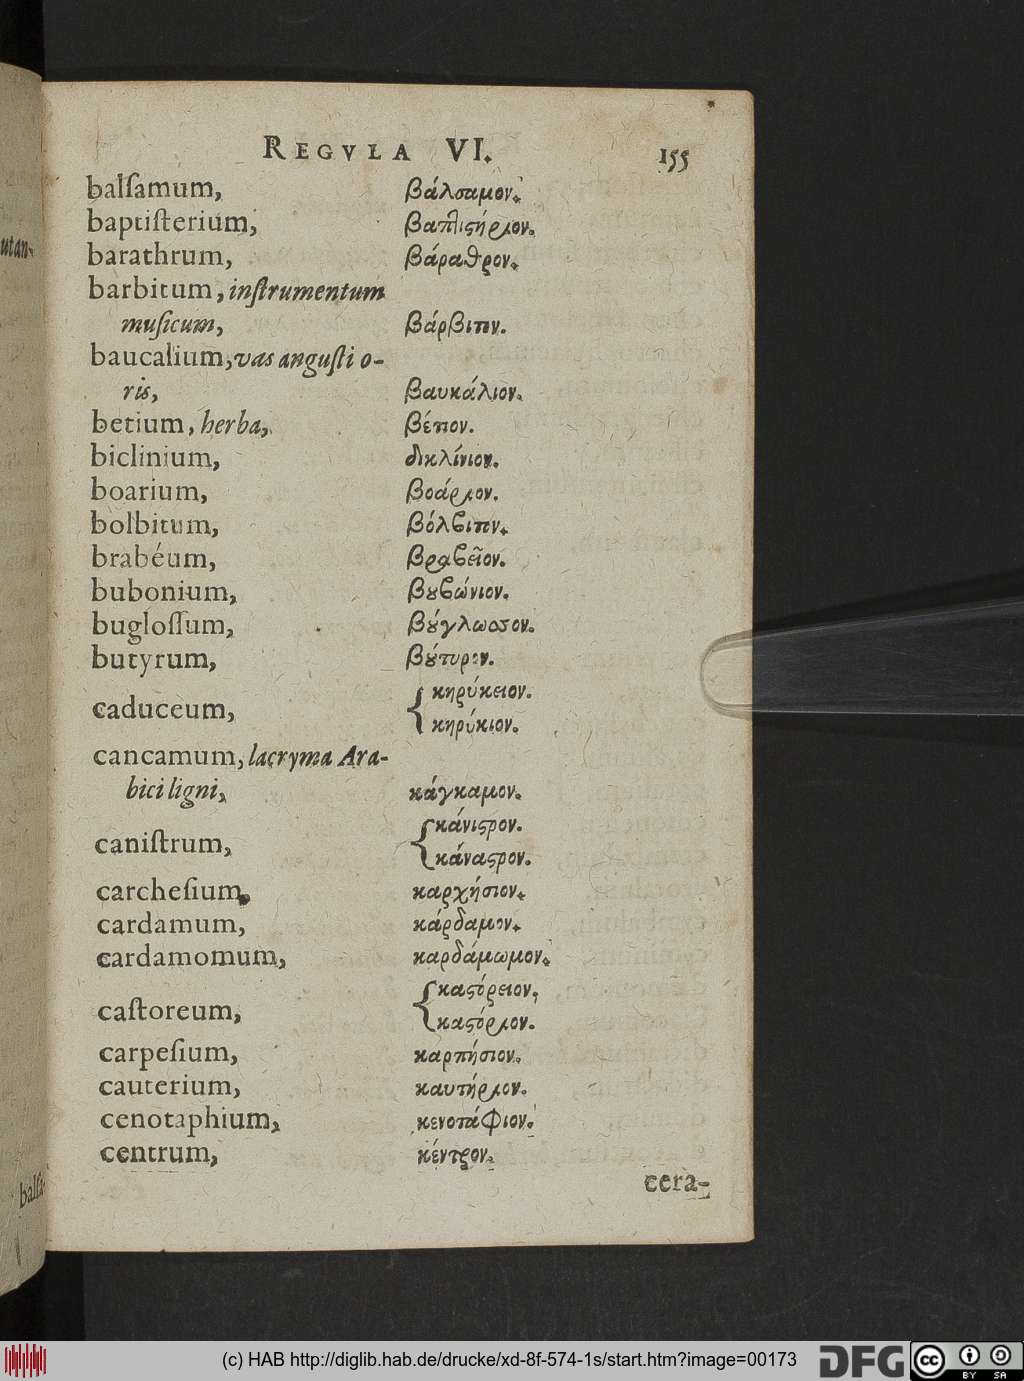 REGVLA VI. 155
balſamum, βάλσαμον.
baptiſterium, βαπτιϛήριον.
barathrum, βάραθρον.
barbitum, inſtrumentum
muſicum, βάρβιτον.
baucalium, vas anguſti o-
ris, βαυκάλιον.
betium, herba, βέτιον.
biclinium, δικλίνιον.
boarium, βοάριον.
bolbitum, βόλβιτον.
brabéum, βραβεῖον.
bubonium, βȣβώνιον.
bugloſſum, βȣ́γλωσσον.
butyrum, βȣ́τυρον.
caduceum, { κηρύκειον.
κηρύκιον.
cancamum, lacryma Ara-
bici ligni, κάγκαμον.
caniſtrum, { κάνιϛρον.
κάναϛρον.
carcheſium, καρχήσιον.
cardamum, κάρδαμον.
cardamomum, καρδάμωμον.
caſtoreum, { καϛόρειον,
καϛόριον.
carpeſium, καρπήσιον.
cauterium, καυτήριον.
cenotaphium, κενοτάφιον.
centrum, κέντρον.
cera-
utan-
balſa-
(c) HAB http://diglib.hab.de/drucke/xd-8f-574-1s/start.htm?image=00173
DFG
cc BY SA